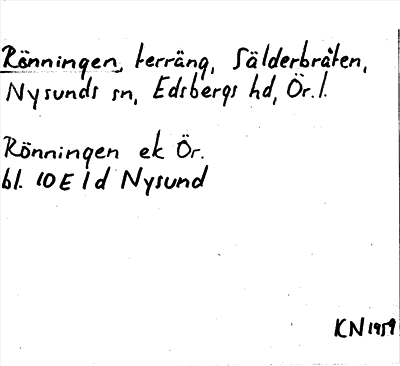 Rönningen, terräng, Sälderbråten,
Nysunds sn, Edsbergs hd, Ör. l.
Rönningen ek Ör.
bl. 10E 1d Nysund
KN 1959